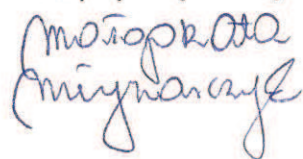 Małgorzata
Młynarczyk